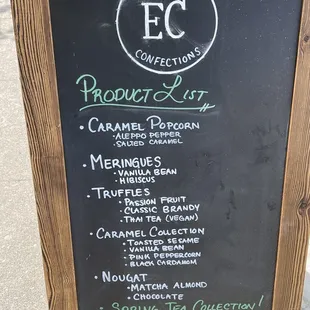 EC
CONFECTIONS
PRODUCT LIST
• CARAMEL POPCORN
• ALEPPO PEPPER
• SALTED CARAMEL
• MERINGUES
• VANILLA BEAN
• HIBISCUS
• TRUFFLES
• PASSION FRUIT
• CLASSIC BRANDY
• THAI TEA (VEGAN)
• CARAMEL COLLECTION
• TOASTED SESAME
• VANILLA BEAN
• PINK PEPPERCORN
• BLACK CARDAMOM
• NOUGAT
• MATCHA ALMOND
• CHOCOLATE
• SPRING TEA COLLECTION!